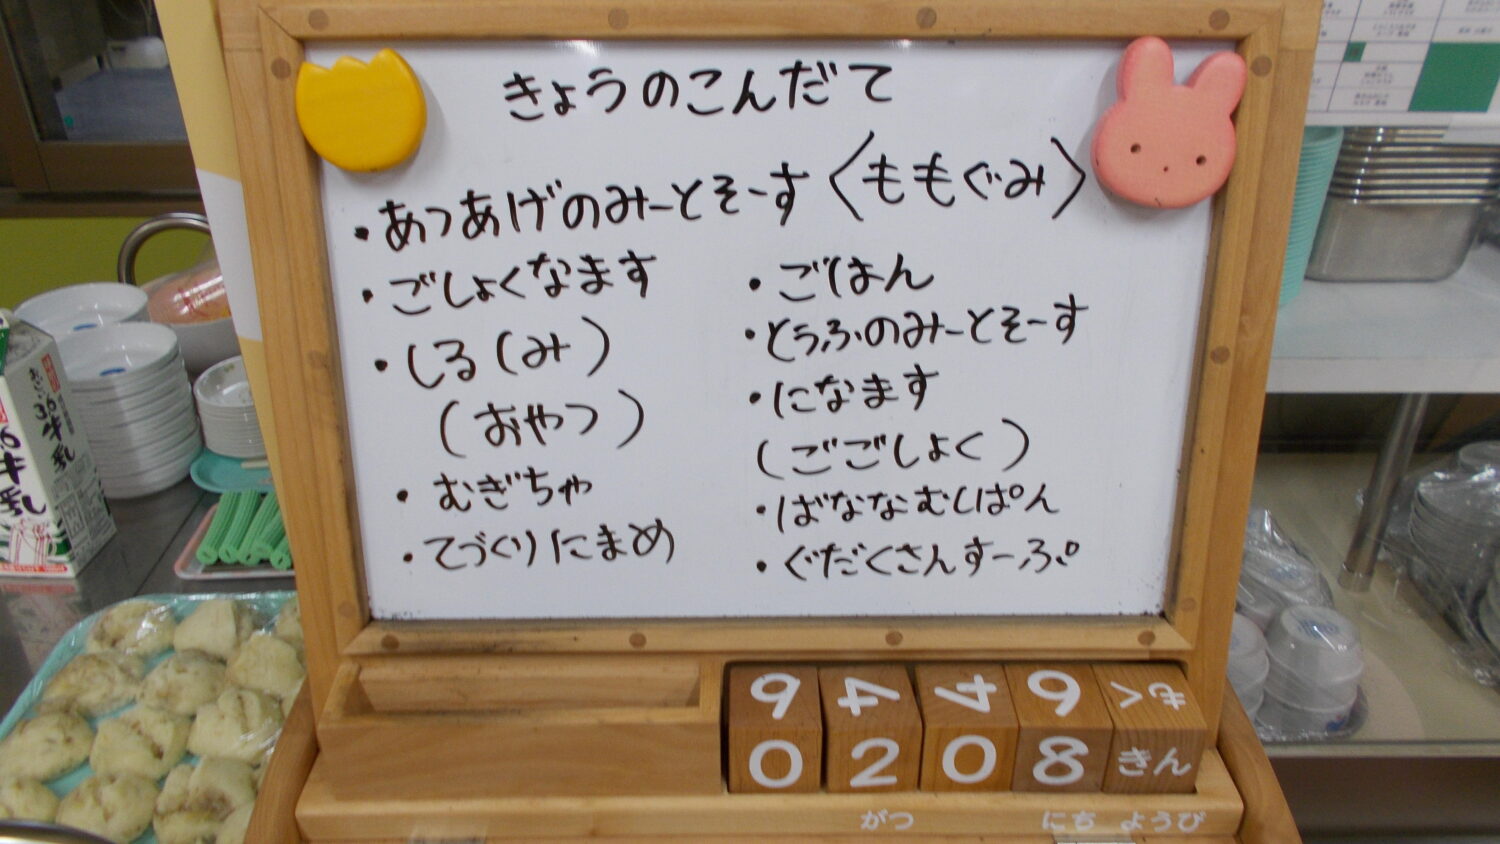 きょうのこんだて
・あつあげのみーとそーす〈ももぐみ〉
・ごしょくなます
・しる(み)
(おやつ)
・むぎちゃ
・てづくりにまめ
・ごはん
・とうふのみーとそーす
・になます
(ごごしょく)
・ばななむしぱん
・ぐだくさんすーぷ
9 4 4 6 もく
0 2 0 8 きん
がつ にち ようび
3.6牛乳